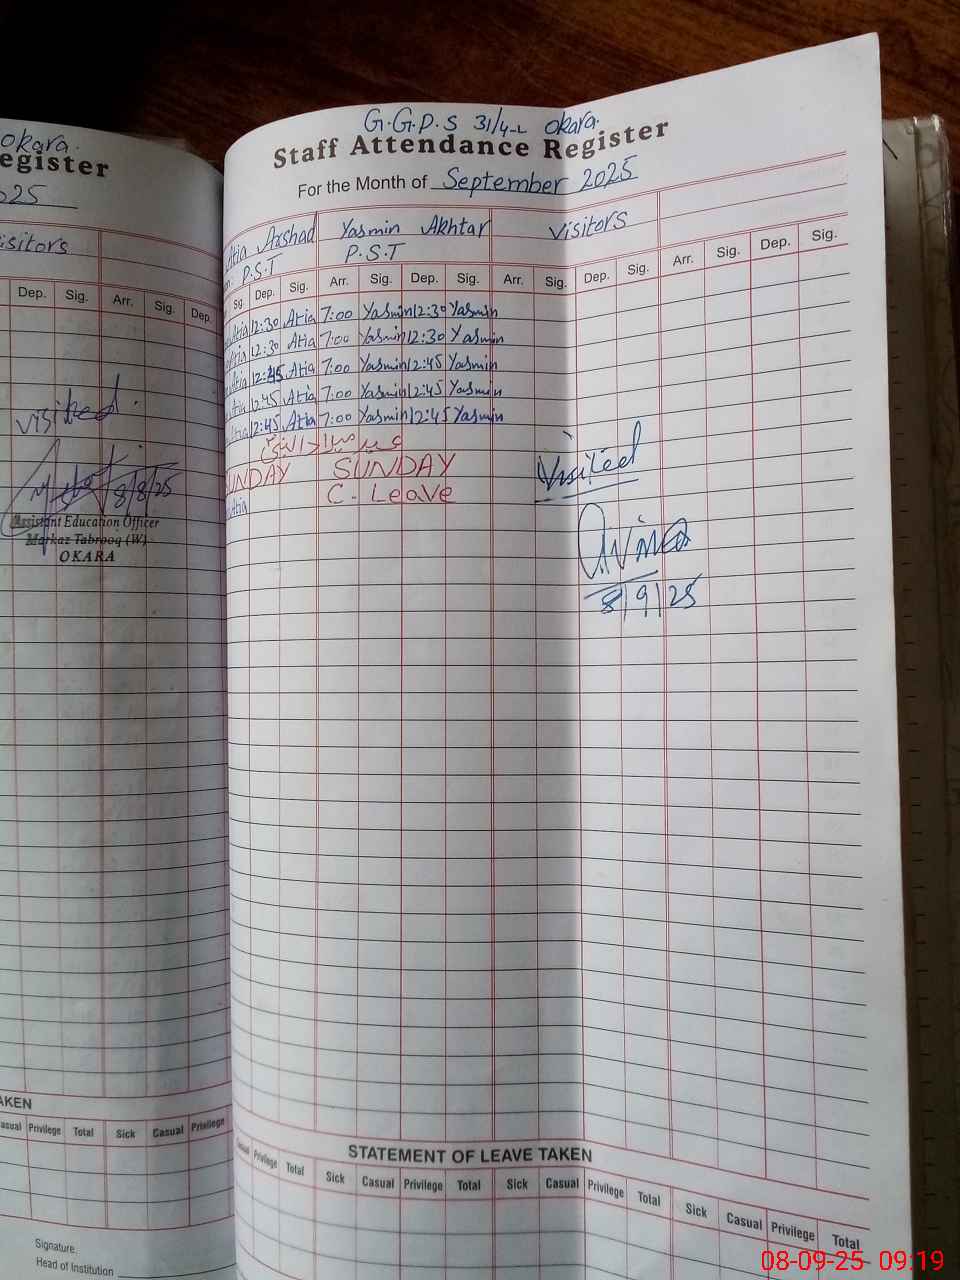 okara.
egister
025
isitors
Dep. Sig. Arr. Sig. Dep.
visited
8/8/25
Assistant Education Officer
Markaz Tabrooq (W)
OKARA
AKEN
asual Privilege Total Sick Casual Privilege
Signature.
Head of Institution
G.G.P.S 31/4-L Okara.
Staff Attendance Register
For the Month of September 2025
Atia Arshad Yasmin Akhtar Visitors
P.S.T P.S.T
Sig. Dep. Sig. Arr. Sig. Dep. Sig. Arr. Sig. Dep. Sig. Arr. Sig. Dep. Sig.
Atia 12:30 Atia 7:00 Yasmin 12:30 Yasmin
Atia 12:30 Atia 7:00 Yasmin 12:30 Yasmin
Atia 12:45 Atia 7:00 Yasmin 12:45 Yasmin
Atia 12:45 Atia 7:00 Yasmin 12:45 Yasmin
Atia 12:45 Atia 7:00 Yasmin 12:45 Yasmin
عید میلاد النبیؐ
SUNDAY SUNDAY
Atia C-Leave
Visited
8/9/25
STATEMENT OF LEAVE TAKEN
Casual Privilege Total Sick Casual Privilege Total Sick Casual Privilege Total Sick Casual Privilege Total
08-09-25 09:19